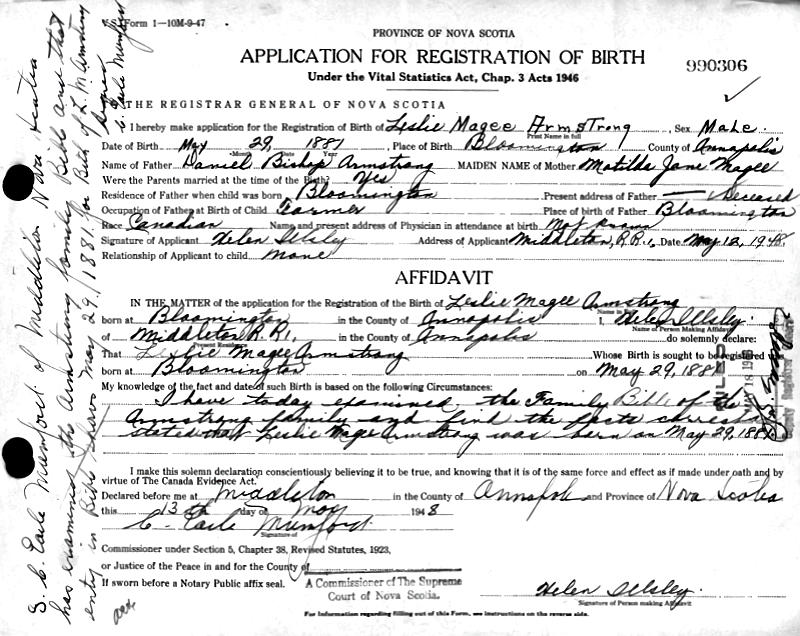 V.S. Form 1—10M-9-47
PROVINCE OF NOVA SCOTIA
APPLICATION FOR REGISTRATION OF BIRTH
Under the Vital Statistics Act, Chap. 3 Acts 1946
990306
THE REGISTRAR GENERAL OF NOVA SCOTIA
I hereby make application for the Registration of Birth of Leslie Magee Armstrong, Sex Male.
Print Name in full
Date of Birth May 29, 1881 Place of Birth Bloomington County of Annapolis
Name of Father Daniel Bishop Armstrong MAIDEN NAME of Mother Matilda Jane Magee
Were the Parents married at the time of the Birth? Yes
Residence of Father when child was born Bloomington Present address of Father — Deceased
Occupation of Father at Birth of Child Farmer Place of birth of Father Bloomington
Race Canadian Name and present address of Physician in attendance at birth Not known
Signature of Applicant Helen Illsley Address of Applicant Middleton, R.R.1, Date May 12, 1948.
Relationship of Applicant to child None
AFFIDAVIT
IN THE MATTER of the application for the Registration of the Birth of Leslie Magee Armstrong
Name in Full
born at Bloomington in the County of Annapolis I, Helen Illsley
Name of Person Making Affidavit
of Middleton R.R1, in the County of Annapolis do solemnly declare:
Present Residence
That Leslie Magee Armstrong Whose Birth is sought to be registered was
born at Bloomington on May 29, 1881
My knowledge of the fact and date of such Birth is based on the following Circumstances:
I have today examined the Family Bible of the
Armstrong family and find the facts
stated that Leslie Magee Armstrong was born on May 29, 1881
I make this solemn declaration conscientiously believing it to be true, and knowing that it is of the same force and effect as if made under oath and by
virtue of The Canada Evidence Act.
Declared before me at Middleton in the County of Annapolis and Province of Nova Scotia
this 13th day of May 1948
C. Earle Mumford
Signature of
Commissioner under Section 5, Chapter 38, Revised Statutes, 1923,
or Justice of the Peace in and for the County of
If sworn before a Notary Public affix seal.
A Commissioner of The Supreme
Court of Nova Scotia.
Helen Illsley.
Signature of Person making Affidavit
For Information regarding filling out of this Form, see instructions on the reverse side.
I, C. Earle Mumford of Middleton Nova Scotia
has examined the Armstrong family Bible and that
entry in Bible shows May 29/1881 for Birth of L.M. Armstrong
Signed
C. Earle Mumford
FILED
MAY 18 19